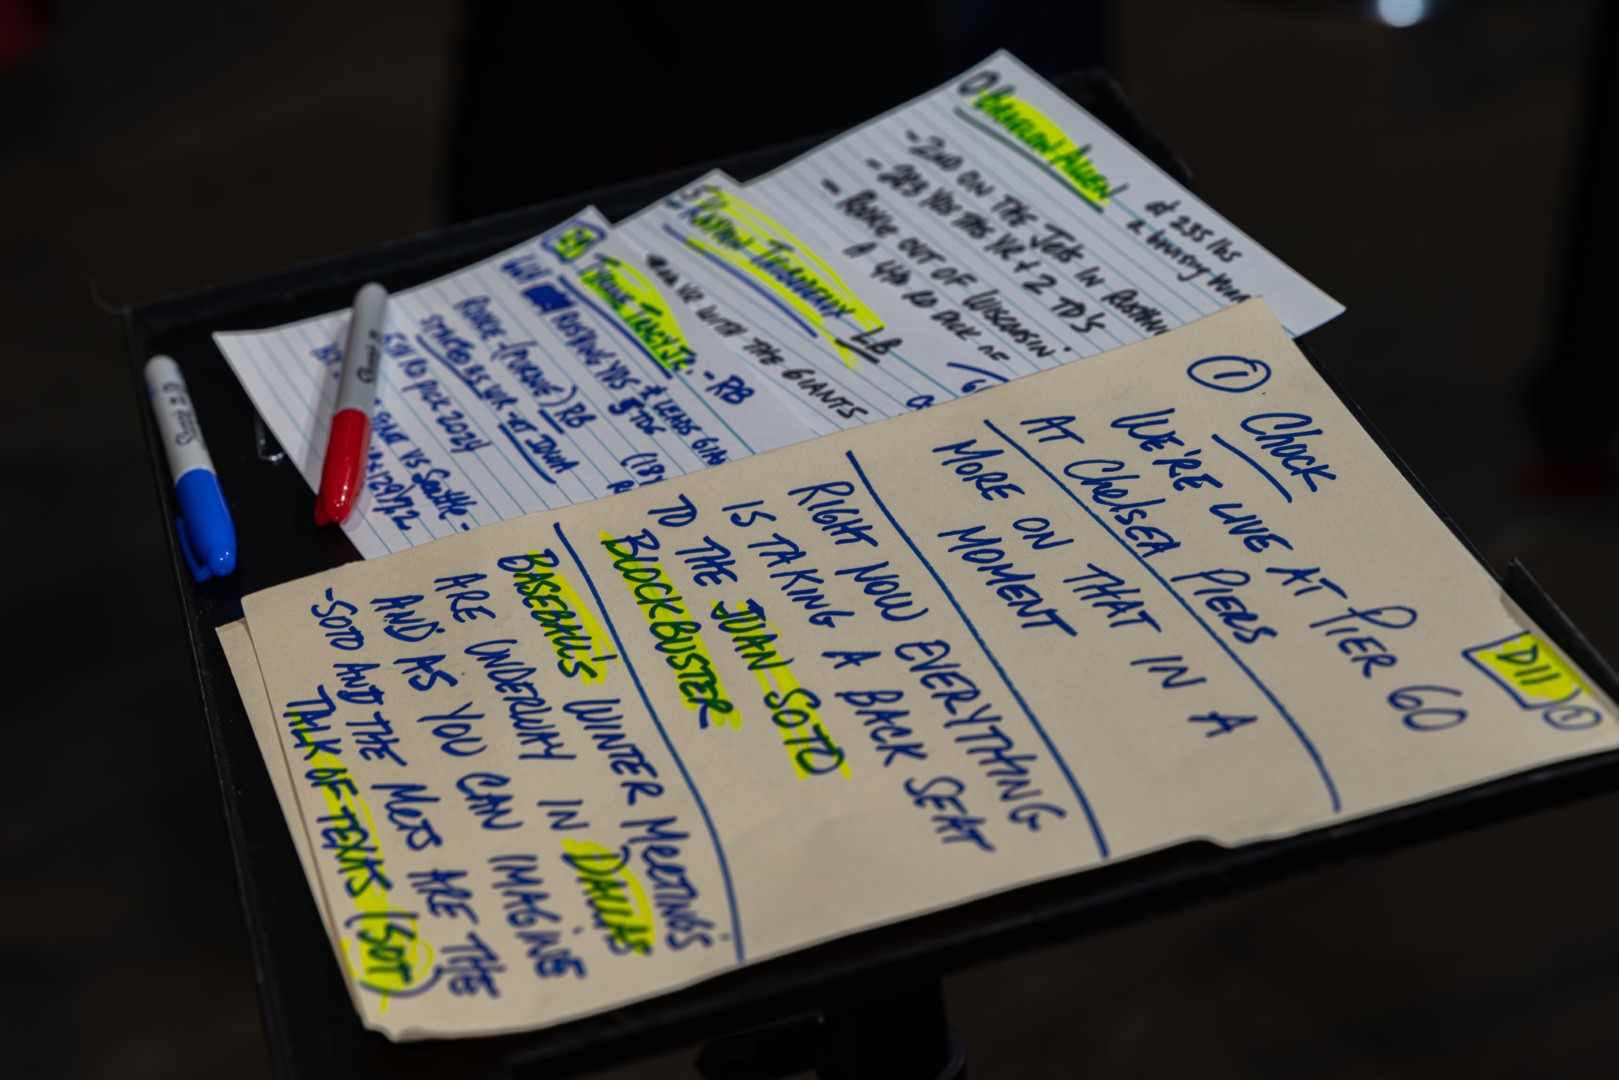 ① Chuck
DII ①
WE'RE LIVE AT PIER 60
AT Chelsea PIERS
MORE ON THAT IN A
MOMENT
RIGHT NOW EVERYTHING
IS TAKING A BACK SEAT
TO THE JUAN SOTO
BLOCKBUSTER
BASEBALL'S WINTER MEETINGS
ARE UNDERWAY IN DALLAS
AND AS YOU CAN IMAGINE
-SOTO AND THE METS ARE THE
TALK OF TEXAS (SOT)
0 BRAELON ALLEN
at 235 lbs
-2ND ON THE JETS IN RUSHING
YDS THIS YR + 2 TD'S
- ROOKIE OUT OF WISCONSIN
A 4th RD PICK
LB
YR WITH THE GIANTS
TYRONE TRACY JR. - RB
RUSHING YDS & LEADS
5 TDS
ROOKIE - (PURDUE) RB
STARTED AS WR - AT IOWA
5th RD PICK 2024
VS Seattle -